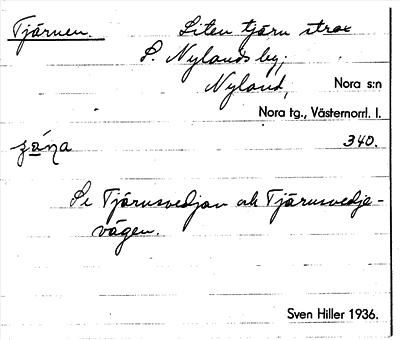 Tjärnen. Liten tjärn strax
S. Nylands by;
Nyland, Nora s:n
Nora tg., Västernorrl. l.
340.
Se Tjärnsvedjan och Tjärnsvedje-
vägen.
Sven Hiller 1936.